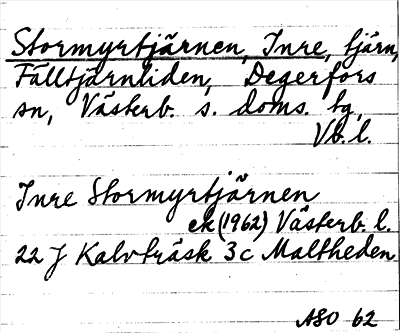 Stormyrtjärnen, Inre, tjärn,
Fälltjärnliden, Degerfors
sn, Västerb. s. doms. tg,
Vb. l.
Inre Stormyrtjärnen
ek (1962) Västerb. l.
22 J Kalvträsk 3c Maltheden
ASO 62